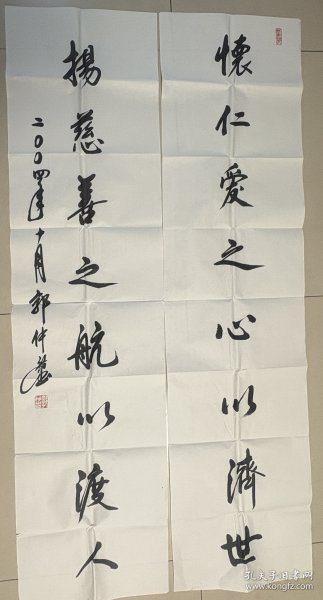 懷仁愛之心以濟世
揚慈善之航以渡人
二00四年十月郭仲
孔夫子旧书网